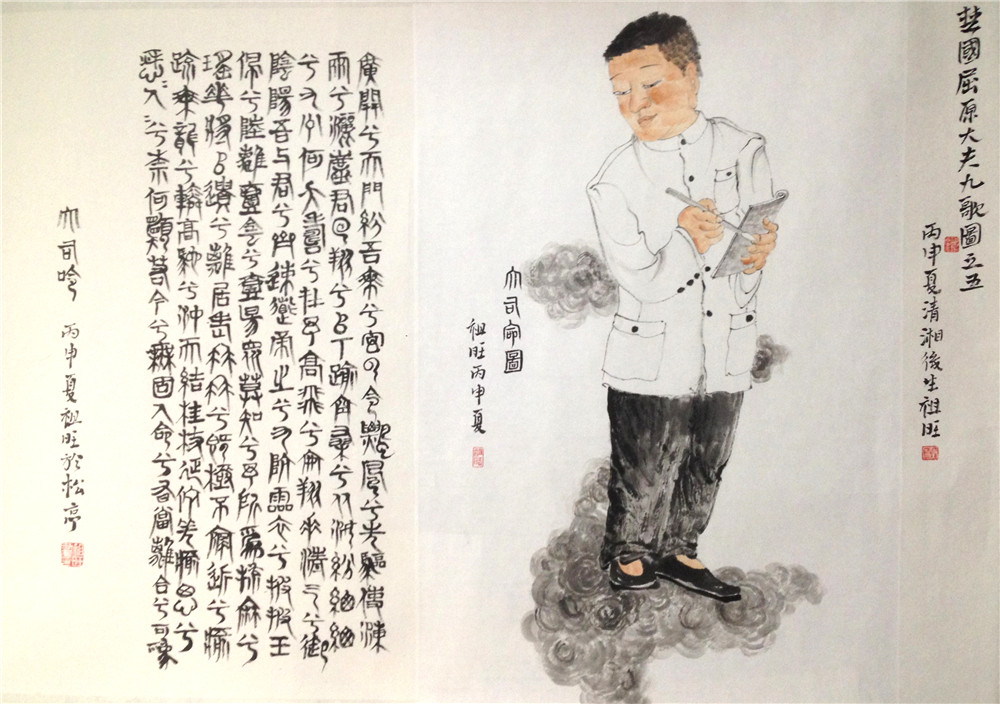 楚國屈原大夫九歌圖之五
丙申夏清湘後生祖旺
大司命圖
祖旺丙申夏
廣開兮天門紛吾乘兮玄雲令飄風兮先驅使涷
雨兮灑塵君回翔兮以下踰空桑兮从女紛總總
兮九州何夭壽兮在予高飛兮安翔乘清气兮御
陰陽吾与君兮齊速導帝之兮九阬靈衣兮被被玉
佩兮陸離壹陰兮壹陽眾莫知兮予所為折麻兮
瑤華將以遺兮離居老冉冉兮既極不寖近兮愈
疏乘龍兮轔高馳兮沖天結桂枝延佇羌愈思兮
愁人兮柰何願若今兮無固人命兮有當離合兮可為
大司命
丙申夏祖旺於松亭